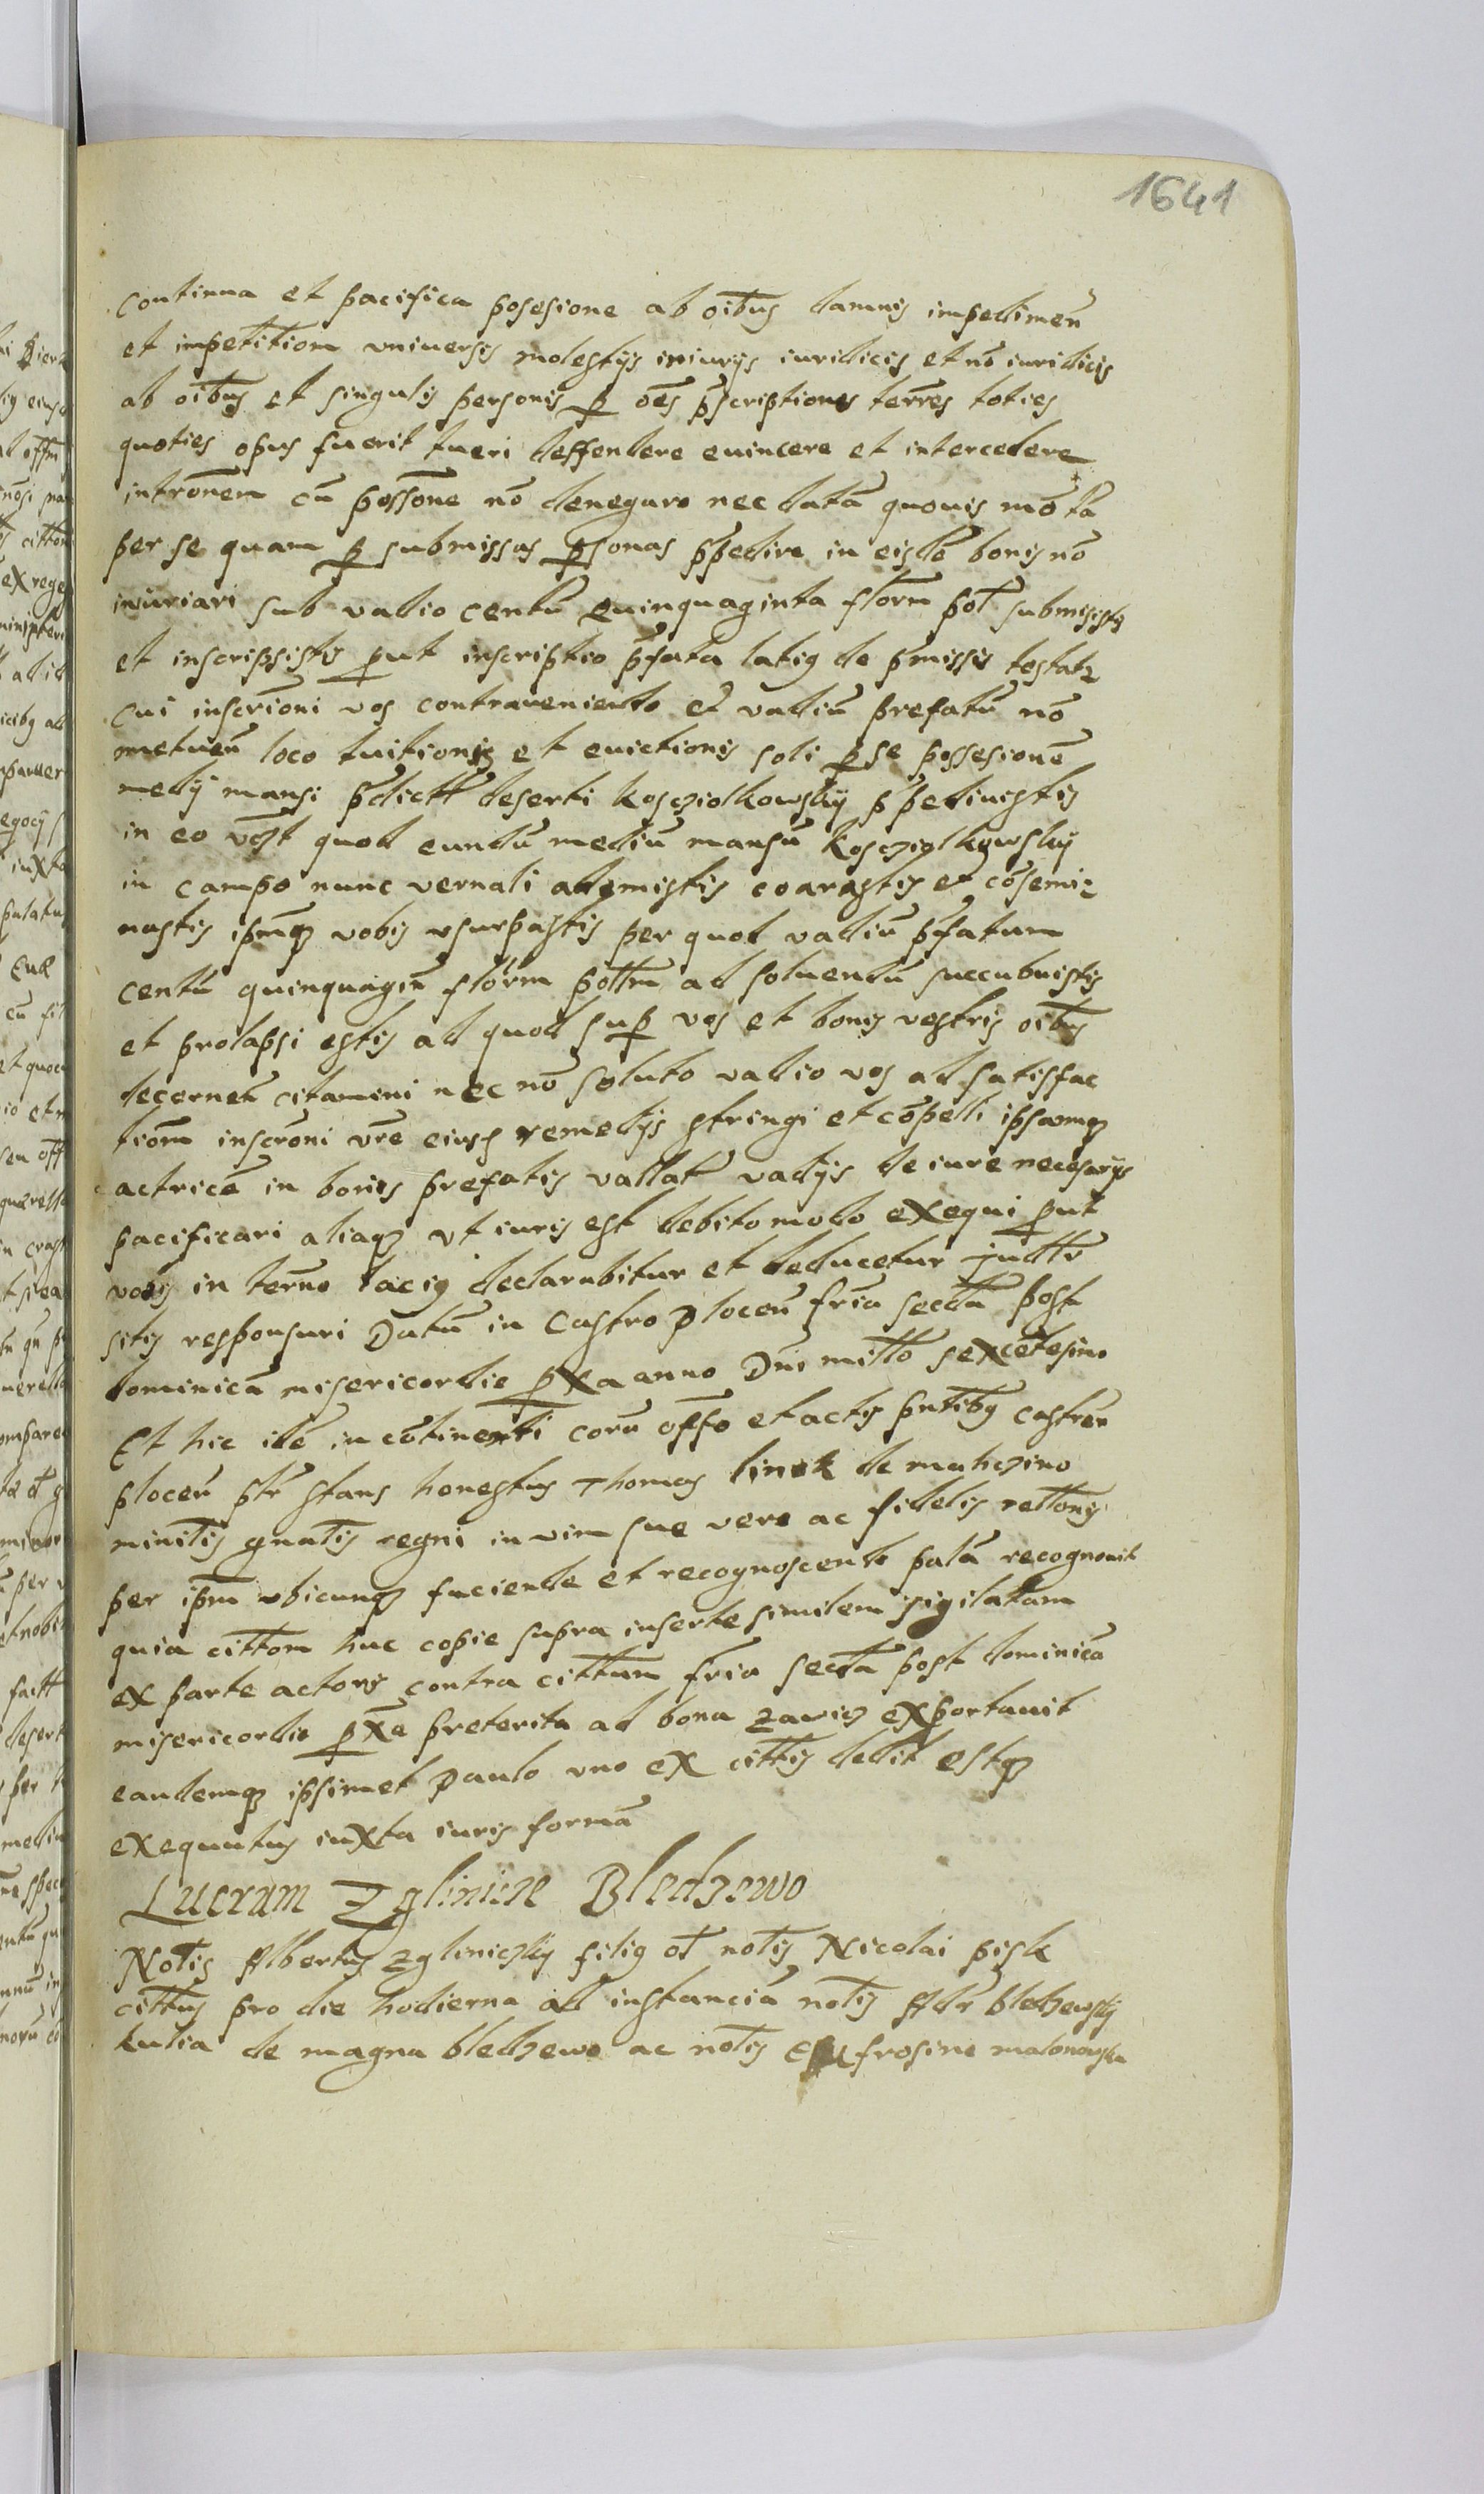 1641
continua et pacifica posesione ab oībus damnis impedimen̄
et impetitiom vniuersis molestijs iniurijs iuridicis et nō iuridicis
ab oībus et singulis personis p̱ oēs p̄scriptiones terrēs toties
quoties opus fuerit tueri deffendere euincere et intercedere
intromen̄ cū possōne nō denegare nec datā quouis mō tā
per se quam p̱ submissas p̱sonas p̄pedire in eisdē bonis nō
iniuriari sub vadio centū quinquaginta florm̄ pol̄ submisistis
et inscripsistis p̱ut inscriptio p̄fata latiꝰ de p̄missis testatr
cui inscrīoni vos contraueniendo et vadiū prefatū nō
metuen̄ loco tuitionis et euictionis soli p̱ se possesionē
medij mansi p̄dictt deserti koscziolkowskij p̄pediuistis
in eo vdzt quod eundū mediū mansū koscziolkowskij
in campo nunc vernali ademistis coarastis et cōsemi-
nastis ipm̄qꝫ vobis vsurpastis per quod vadiū p̄fatum
centū quinquagin̄ florm̄ poll̄m ad soluendū succubuistis
et prolapsi estis ad quod sup̱ vos et bonis vestris oībus
decernen̄ citamini nec nō soluto vadio vos ad satisfac
tiom̄ inscrōni vrē eiusꝗ remedijs stringi et cōpelli ipsamqꝫ
actricē in bonis prefatis vallat̄ vadijs de iure necesarijs
pacificari aliaqꝫ vt iuris est debito modo exequi p̱ut
vobis in term̄o laciꝰ declarabitur et deducetur judtr̄
sitis responsuri Datū in Castro plocen̄ fr̄ia secda post
dominicā misericordie p̱xa anno Dn̄i mill̄o sexcētesimo
Et hic idē in cōtinenti corā off̄o et actis p̄ntibꝰ castren̄
plocen̄ ptr̄ stans honestus Thomas linek de mahczino
minīlis gn̄alis regni in vim sue vere ac fidelis rell̄onis
per ipm̄ vbicunqꝫ faciende et recognoscende palā recognouit
quia citt̄om huc copie supra inserte similem sigilatam
ex parte actoris contra citt̄um fr̄ia secda post dominicā
misericordie p̱xe preterita ad bona zawicz exportauit
eandemqꝫ ipsimet paulo vno ex citt̄is dedit estqꝫ
exequutus iuxta iuris formā
Lucrum Zglinicze Bledzewo
Notis Albertus zgliniczkij filiꝰ ol̄ notis Nicolai pisk
citt̄us pro die hodierna ad instanciā notis Adr̄ bledzewskij
kulia de magna bledzewo ac notis Eufrosine malonowska